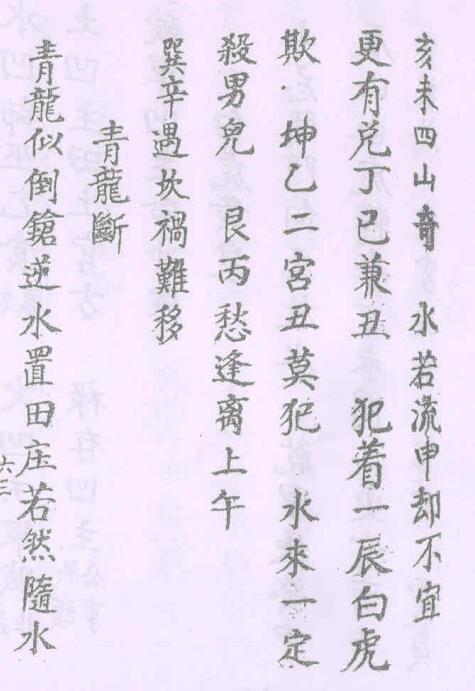 亥未四山奇　水若流申却不宜
更有兌丁巳兼丑　犯着一辰白虎
欺　坤乙二宮丑莫犯　水来一定
殺男兒　艮丙愁逢离上午
巽辛遇坎禍難移
青龍斷
青龍似倒鎗逆水置田庄若然隨水
六三